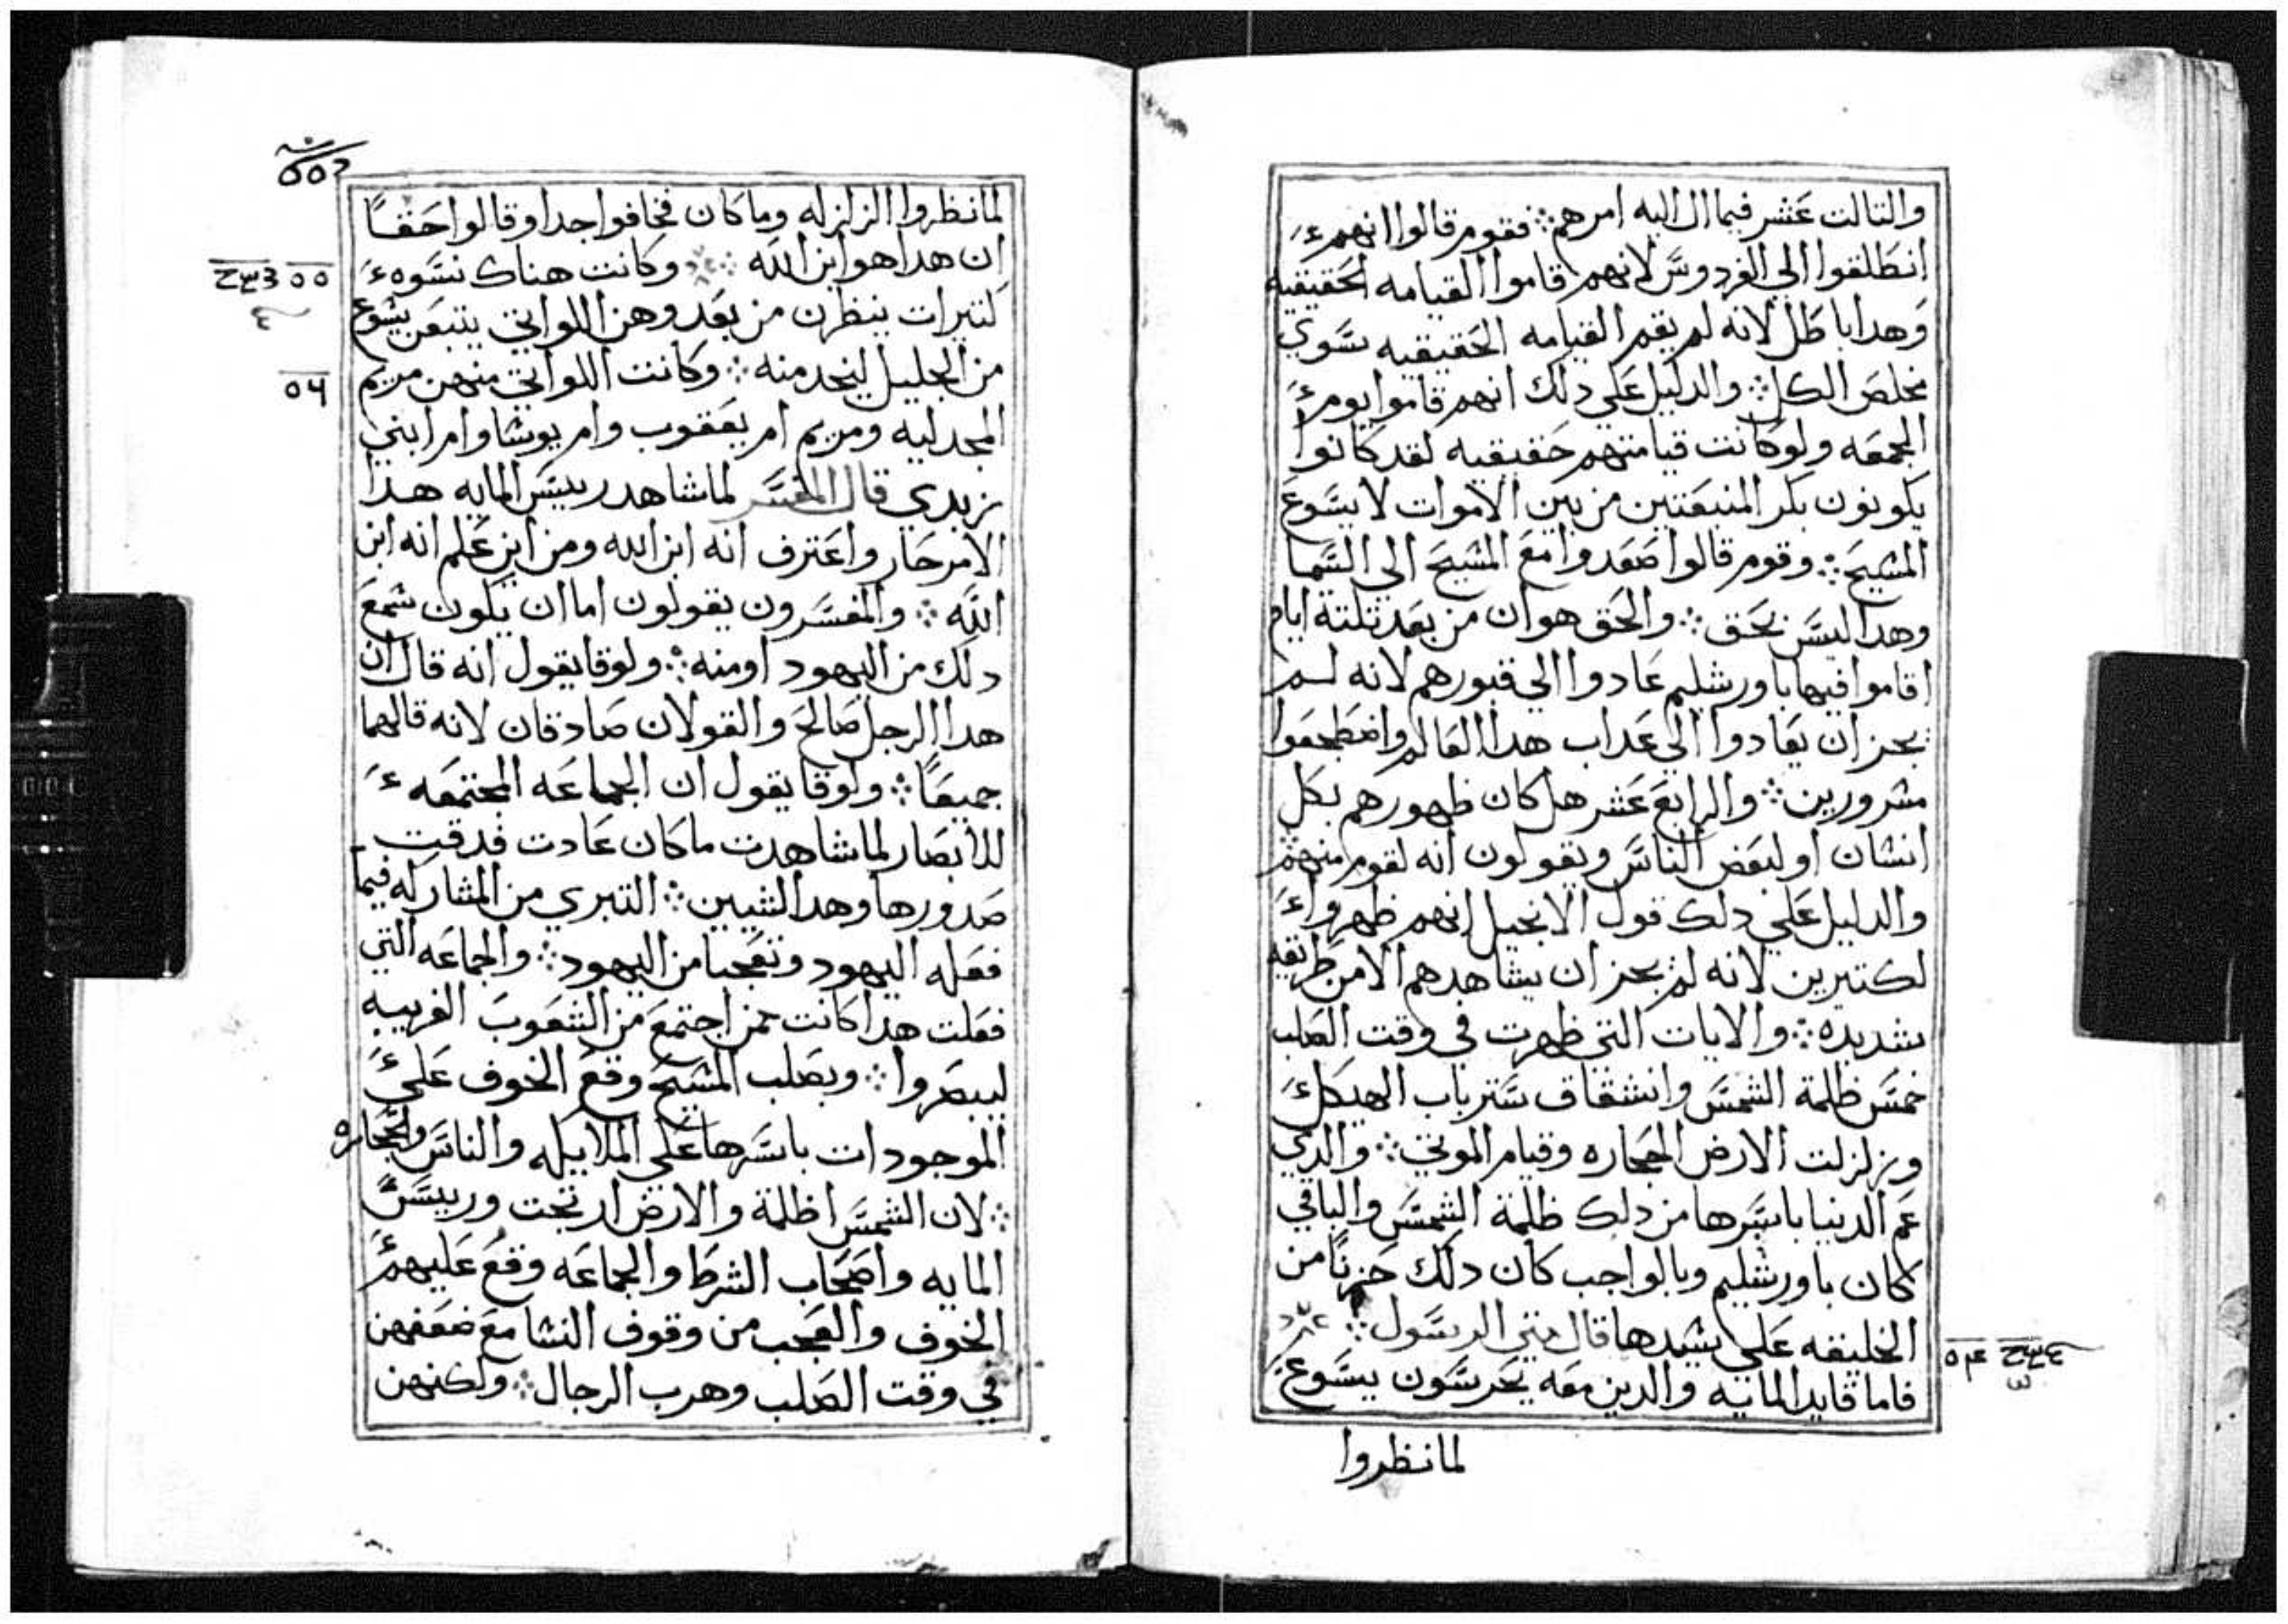 والتالت عشر فيما ال اليه امرهم ፨ فقوم قالوا انهم
انطلقوا الي الفردوس لانهم قاموا القيامه الحقيقيه
وهدا باطل لانه لم يقم القيامه الحقيقيه سوي
مخلص الكل ፨ والدليل علي دلك انهم قاموا يوم
الجمعه ولو كانت قيامتهم حقيقيه لقد كانوا
يكونون بكر المنبعتين من بين الاموات لا يسوع
المسيح ፨ وقوم قالوا صعدوا مع المسيح الي السما
وهدا ليس بحق ፨ والحق هو ان من بعد تلتة ايام
اقاموا فيها باورشليم عادوا الي قبورهم لانه لم
يجز ان يعادوا الي عداب هدا العالم واضطجعوا
مسرورين ፨ والرابع عشر هل كان ظهورهم بكل
انسان او لبعض الناس ويقولون انه لقوم منهم
والدليل علي دلك قول الانجيل انهم ظهروا
لكتيرين لانه لم يجز ان يشاهدهم الا من طريقه
شديده ፨ والايات التي ظهرت في وقت الصلب
خمس ظلمة الشمس وانشقاق ستر باب الهيكل
وزلزلت الارض الحجاره وقيام الموتي ፨ والدي
عم الدنيا باسرها من دلك ظلمة الشمس والباقي
كان باورشليم وبالواجب كان دلك حزنًا من
الخليقه علي سيدها قال متي الرسول ፨
فاما قايد المايه والدين معه يحرسون يسوع
لما نظروا
لما نظروا الزلزله وما كان فخافوا جدا وقالوا حقًا
ان هدا هو ابن الله ፨ وكانت هناك نسوه
كتيرات ينظرن من بعد وهن اللواتي يتبعن يسوع
من الجليل ليخدمنه ፨ وكانت اللواتي منهن مريم
المجدليه ومريم ام يعقوب وام يوسا وام ابني
زبدي قال المفسر لما شاهد رييس المايه هدا
الامر حار واعترف انه ابن الله ومن اين علم انه ابن
الله ፨ والمفسرون يقولون اما ان يكون سمع
دلك من اليهود او منه ፨ ولوقا يقول انه قال ان
هدا الرجل صالح والقولان صادقان لانه قالهما
جميعًا ፨ ولوقا يقول ان الجماعه المجتمعه
للابصار لما شاهدت ما كان عادت فدقت
صدورها وهدا لشيين ፨ التبري من المشاركه فيما
فعله اليهود وتعجبا من اليهود ፨ والجماعه التي
فعلت هدا كانت ممن اجتمع من الشعوب الغريبه
ليبصروا ፨ وبصلب المسيح وقع الخوف علي
الموجودات باسرها علي الملايكه والناس والحجاره
፨ لان الشمس اظلمة والارض ارتجت ورييس
المايه واصحاب الشرط والجماعه وقع عليهم
الخوف والعجب من وقوف النسا مع ضعفهن
في وقت الصلب وهرب الرجال ፨ ولكنهن